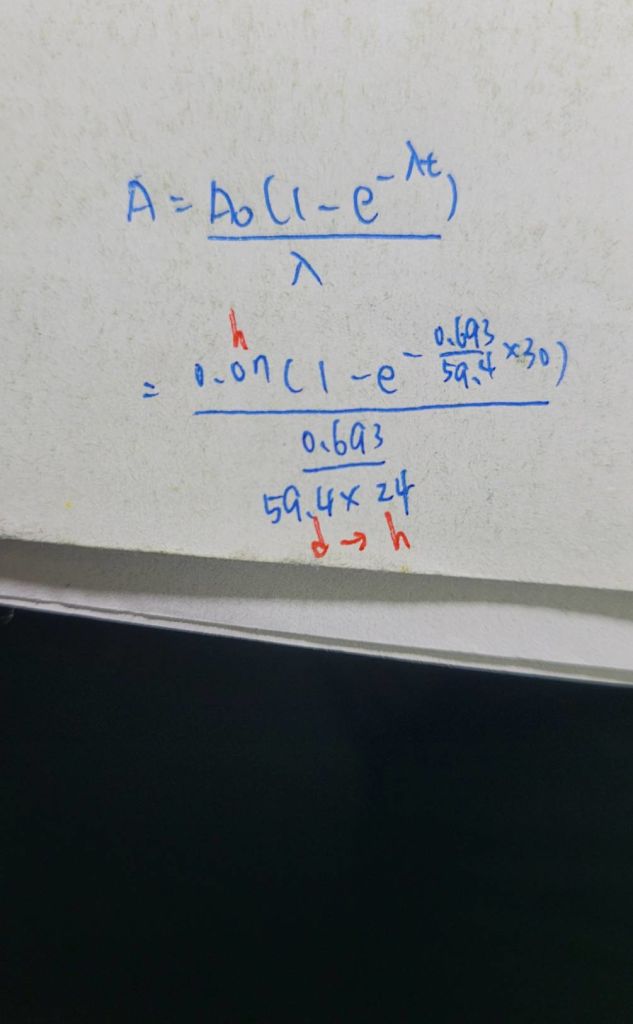 A = A₀(1 - e^(-λt))
λ
h
= 0.07(1 - e^(-0.693/59.4 × 30))
0.693
59.4 × 24
d → h